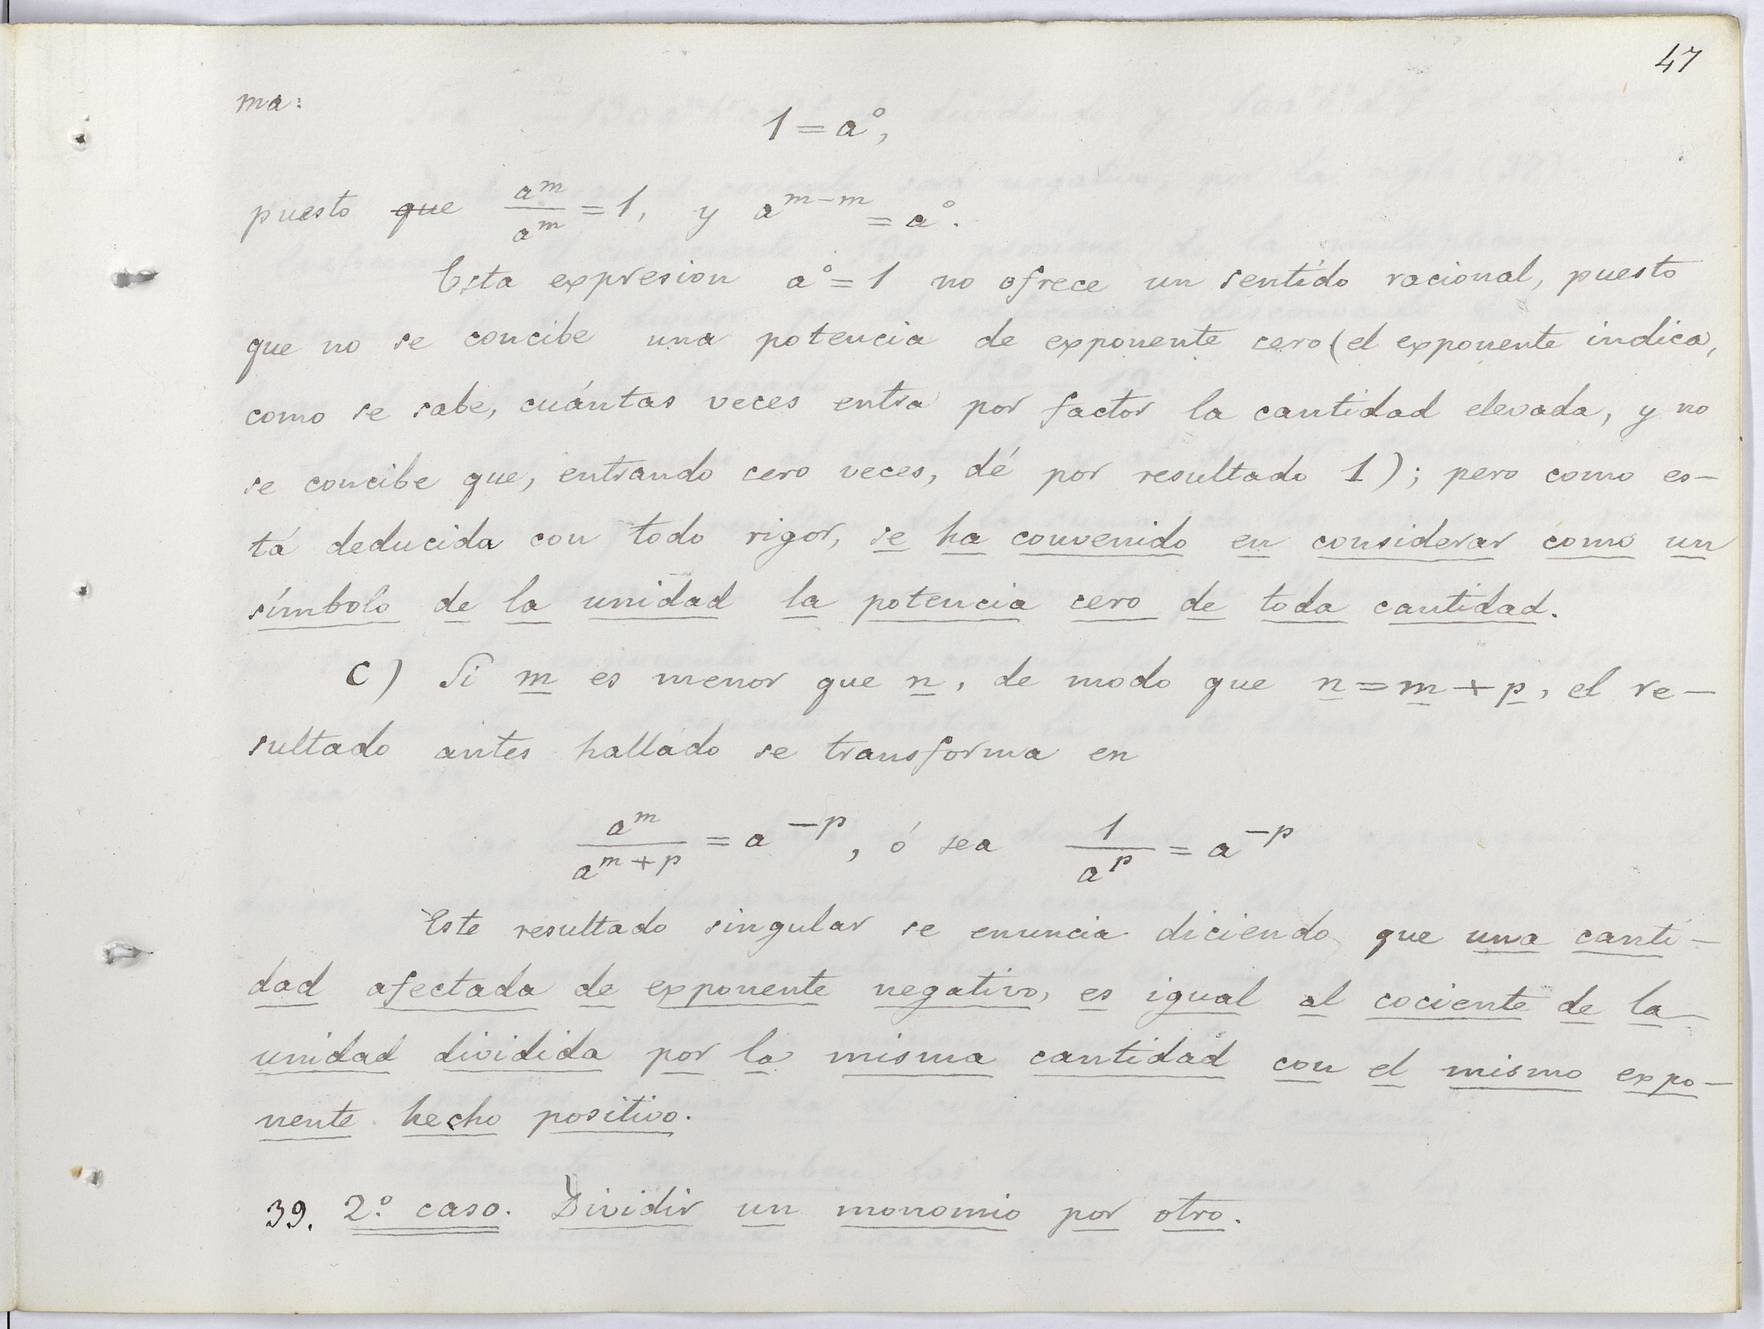 47
ma:
1 = a⁰,
puesto que aᵐ/aᵐ = 1, y aᵐ⁻ᵐ = a⁰.
Esta expresion a⁰ = 1 no ofrece un sentido racional, puesto
que no se concibe una potencia de exponente cero (el exponente indica,
como se sabe, cuántas veces entra por factor la cantidad elevada, y no
se concibe que, entrando cero veces, dé por resultado 1); pero como es-
tá deducida con todo rigor, se ha convenido en considerar como un
símbolo de la unidad la potencia cero de toda cantidad.
C) Si m es menor que n, de modo que n = m + p, el re-
sultado antes hallado se transforma en
aᵐ/aᵐ⁺ᵖ = a⁻ᵖ, ó sea 1/aᵖ = a⁻ᵖ
Este resultado singular se enuncia diciendo que una canti-
dad afectada de exponente negativo, es igual al cociente de la
unidad dividida por la misma cantidad con el mismo expo-
nente hecho positivo.
39. 2.º caso. Dividir un monomio por otro.